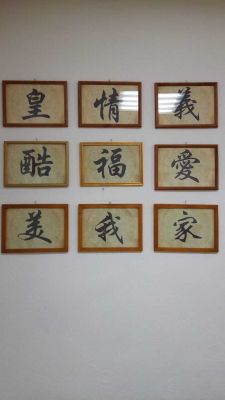 皇 情 義
酷 福 愛
美 我 家